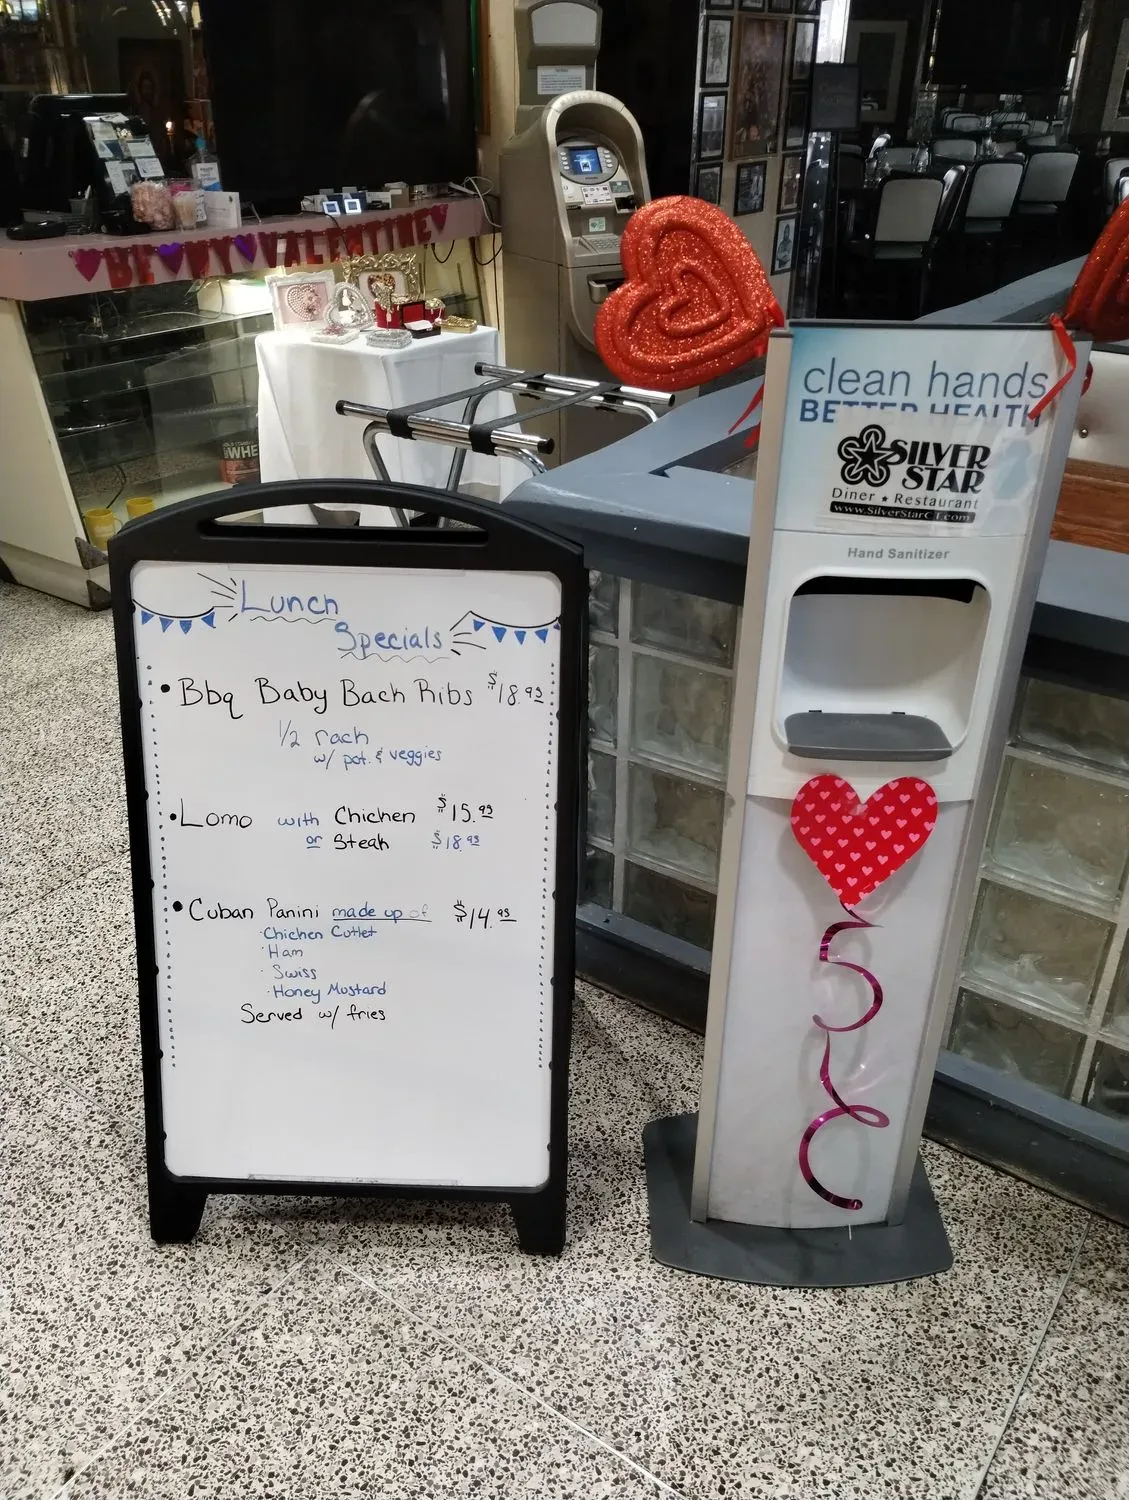 BE MY VALENTINE
clean hands
BETTER HEALTH
SILVER
STAR
Diner ★ Restaurant
www.SilverStarCT.com
Hand Sanitizer
Lunch
Specials
• Bbq Baby Back Ribs $18.95
1/2 rack
w/ pot. & veggies
• Lomo with Chicken $15.95
or Steak $18.95
• Cuban Panini made up of $14.95
· Chicken Cutlet
· Ham
· Swiss
· Honey Mustard
Served w/ fries